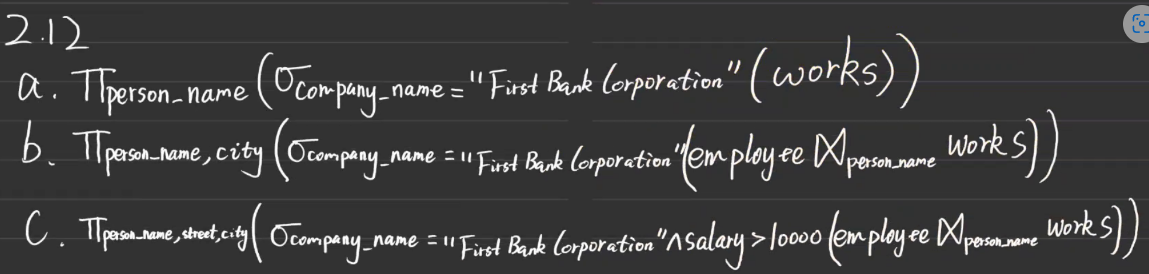 2.12
a. Πperson_name (σcompany_name = "First Bank Corporation" (works))
b. Πperson_name, city (σcompany_name = "First Bank Corporation" (employee ⋈person_name works))
C. Πperson_name, street, city (σcompany_name = "First Bank Corporation" ∧ salary > 10000 (employee ⋈person_name works))